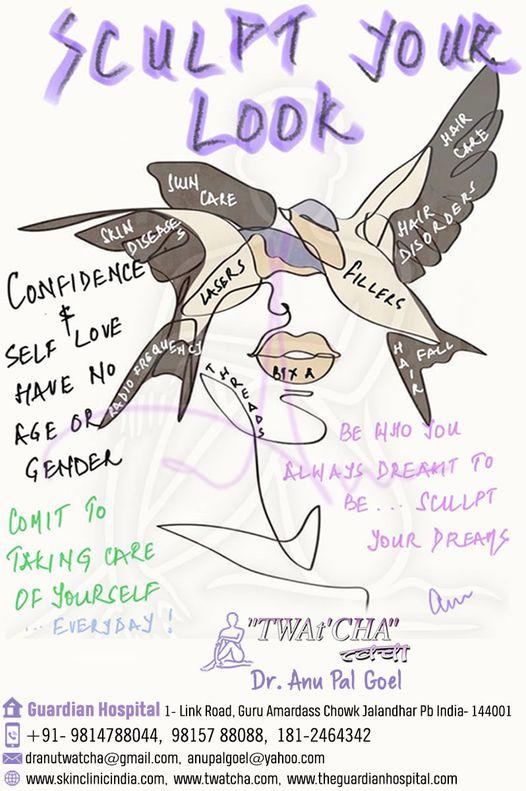 SCULPT YOUR
LOOK
HAIR
CARE
SKIN
CARE
HAIR
DISORDERS
SKIN
DISEASES
LASERS
FILLERS
CONFIDENCE
&
SELF LOVE
HAVE NO
AGE OR
GENDER
RADIO FREQUENCY
THREADS
BTX A
HAIR FALL
BE WHO YOU
ALWAYS DREAMT TO
BE... SCULPT
YOUR DREAMS
COMIT TO
TAKING CARE
OF YOURSELF
...EVERYDAY!
"TWAt'CHA"
त्वचा
Dr. Anu Pal Goel
Guardian Hospital 1- Link Road, Guru Amardass Chowk Jalandhar Pb India- 144001
+91- 9814788044, 98157 88088, 181-2464342
dranutwatcha@gmail.com, anupalgoel@yahoo.com
www.skinclinicindia.com, www.twatcha.com, www.theguardianhospital.com